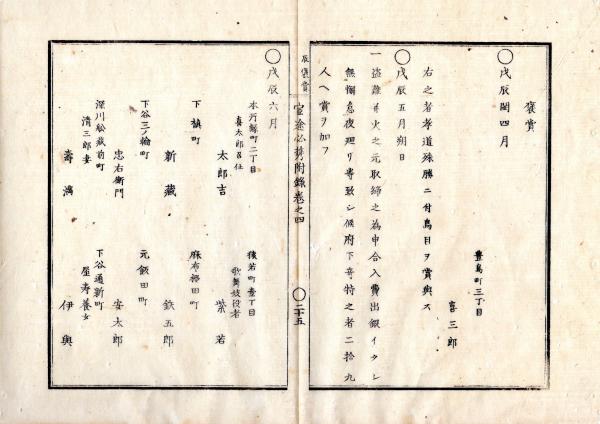 褒賞
〇戊辰閏四月
豊島町三丁目
喜三郎
右之者孝道殊勝ニ付鳥目ヲ賞與ス
〇戊辰五月朔日
一盗難并火之元取締之為申合入費出銀イタシ
無懈怠夜廻リ等致シ候府下奇特之者二拾九
人ヘ賞ヲ加フ
辰褒賞
官途必携附録巻之四
〇二十五
〇戊辰六月
本所緑町二丁目
喜太郎召仕
太郎吉
猿若町壹丁目
歌舞妓役者
紫若
下槙町
新藏
麻布櫻田町
鉄五郎
下谷三ノ輪町
忠右衛門
元飯田町
安太郎
深川松賀町
清三郎妻
壽満
下谷通新町
屋壽養女
伊與